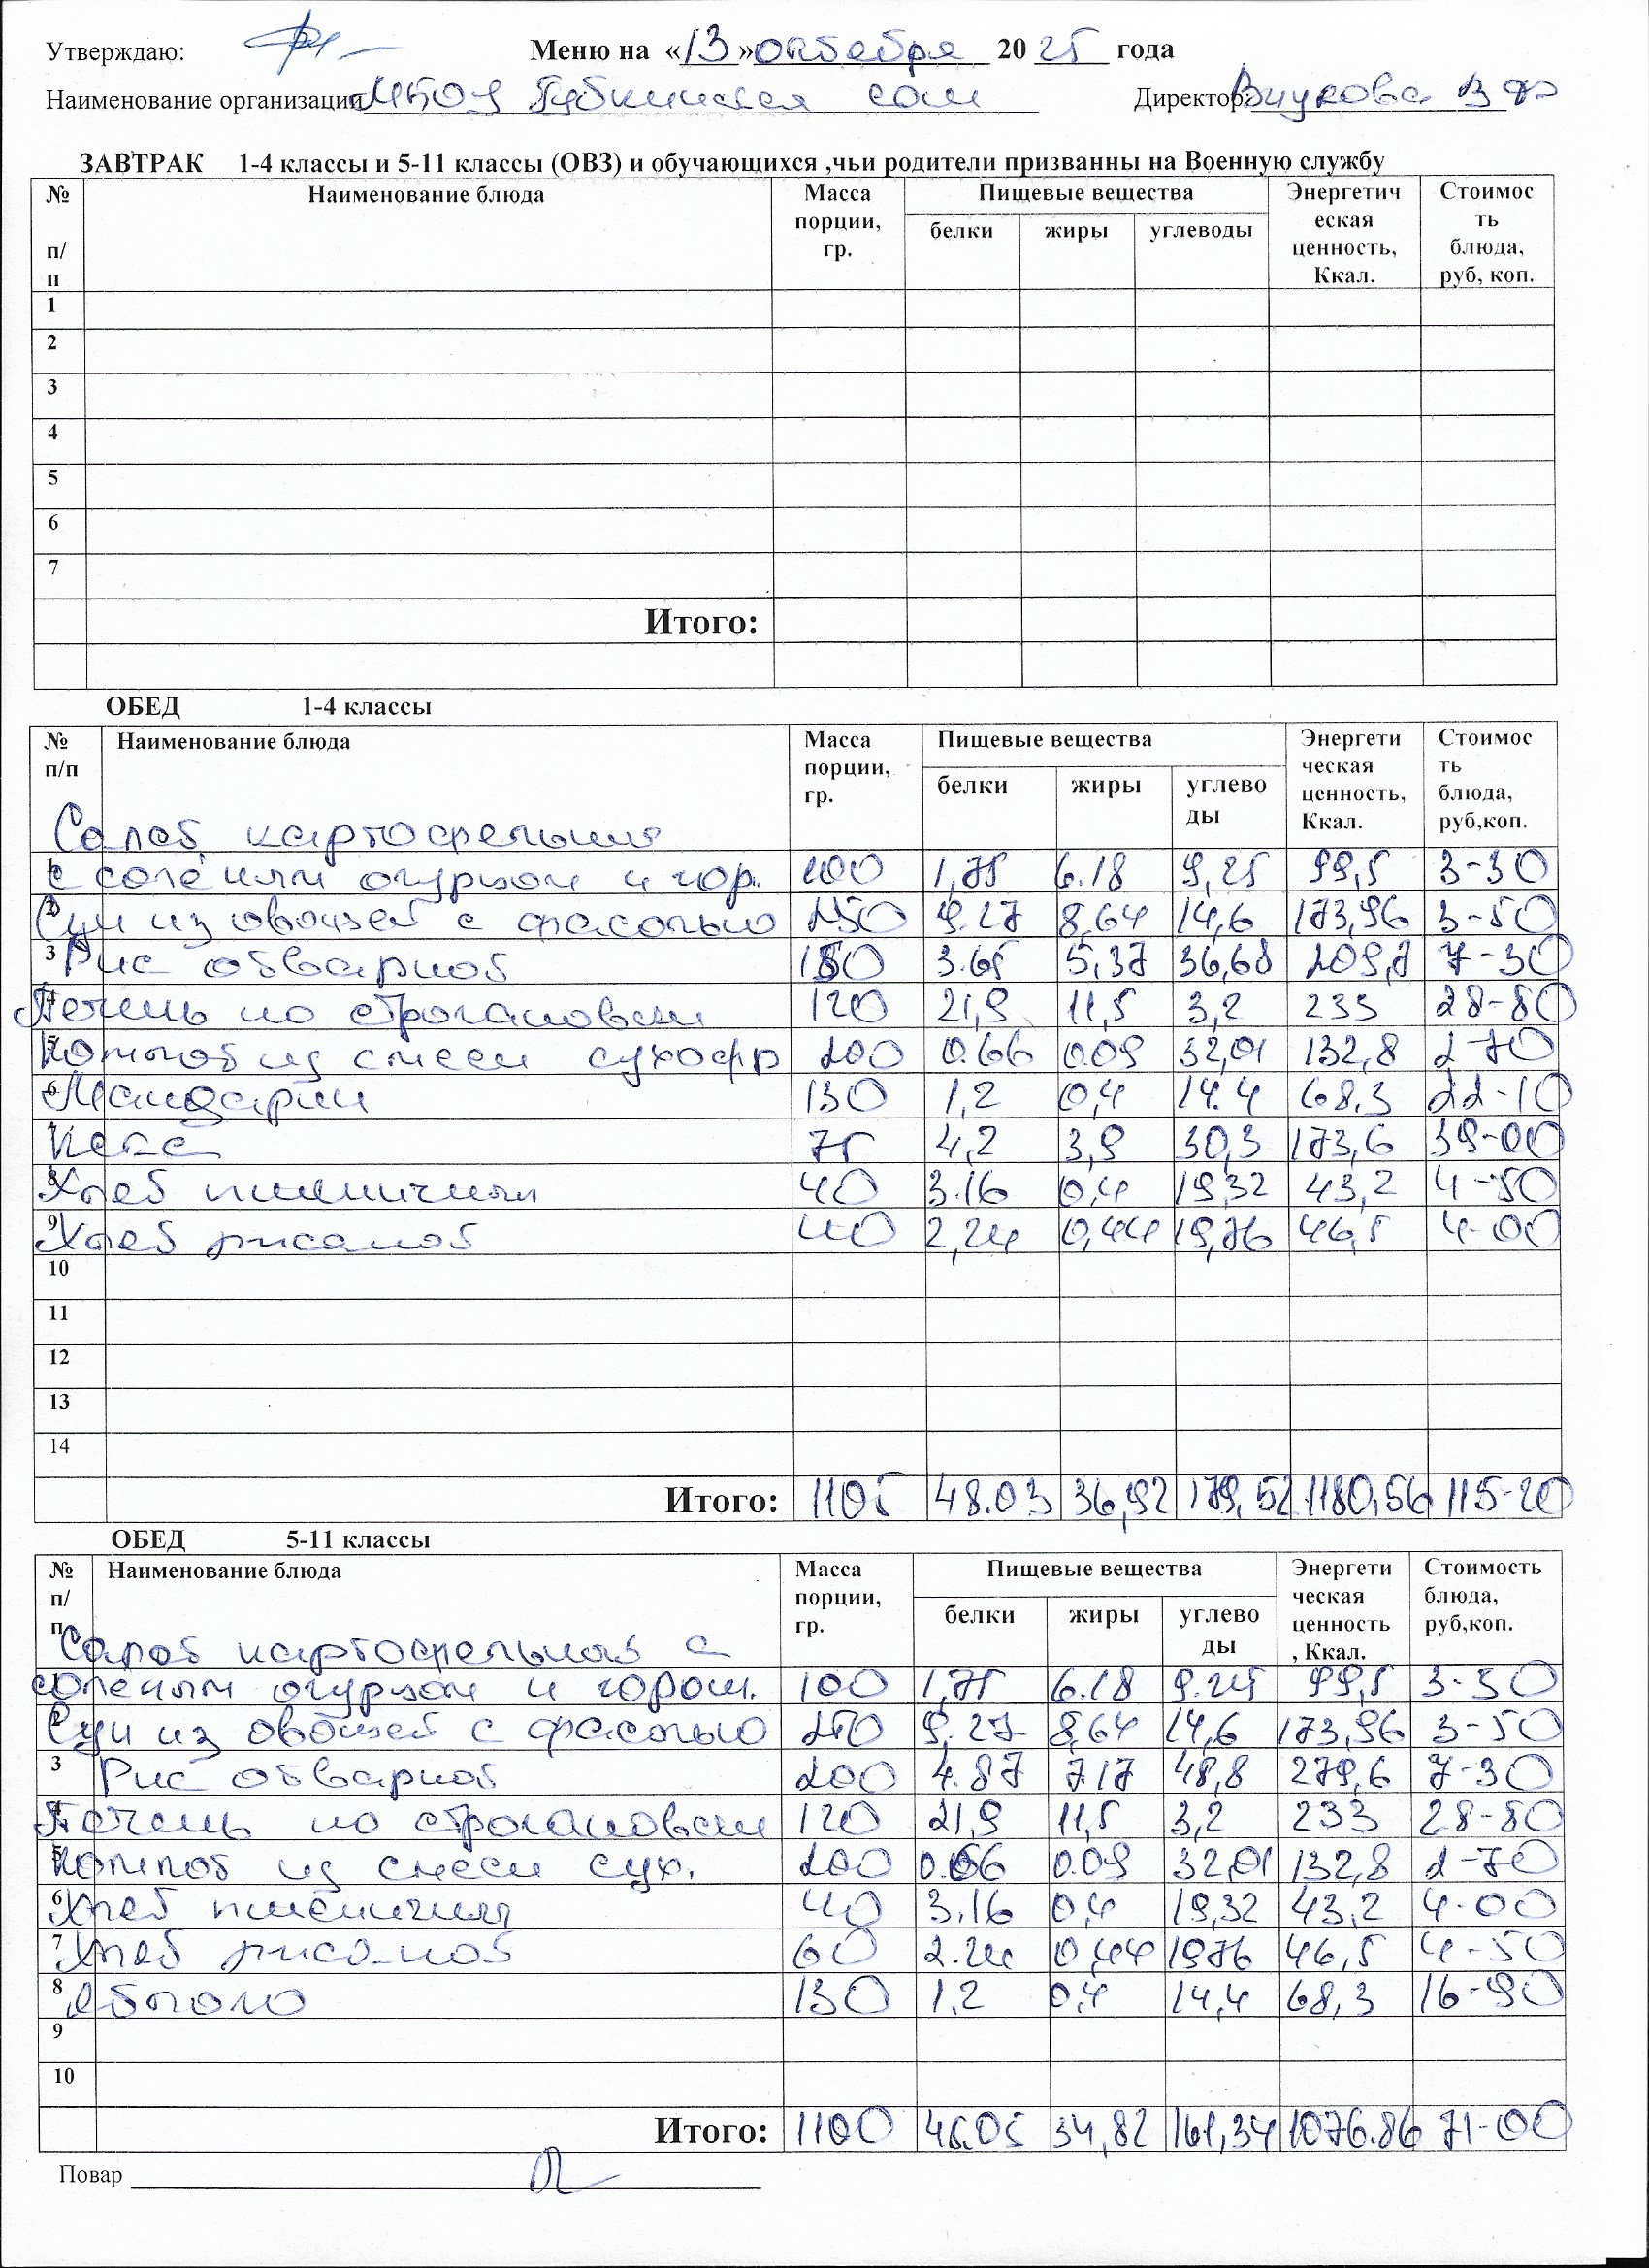 Утверждаю: Меню на «13» октября 2025 года
Наименование организации МБОУ Губкинская сош Директор: Внукова В
ЗАВТРАК 1-4 классы и 5-11 классы (ОВЗ) и обучающихся ,чьи родители призванны на Военную службу
№ п/п Наименование блюда Масса порции, гр. Пищевые вещества Энергетическая ценность, Ккал. Стоимость блюда, руб, коп.
белки жиры углеводы
1
2
3
4
5
6
7
Итого:
ОБЕД 1-4 классы
№ п/п Наименование блюда Масса порции, гр. Пищевые вещества Энергетическая ценность, Ккал. Стоимость блюда, руб,коп.
белки жиры углеводы
Салат картофельный
1 с солёным огурцом и гор. 100 1,75 6.18 9,25 99,5 3-30
2 Суп из овощей с фасолью 250 9.27 8,64 14,6 173,96 3-50
3 Рис отварной 150 3.65 5,37 36,68 209,7 7-30
4 Печень по строгановски 120 21,9 11,5 3,2 233 28-80
5 Компот из смеси сухофр 200 0.66 0.09 32,01 132,8 2-70
6 Мандарин 130 1,2 0,4 14.4 68,3 22-10
7 Кекс 75 4,2 3,9 30,3 173,6 39-00
8 Хлеб пшеничный 40 3.16 0,4 19,32 43,2 4-50
9 Хлеб ржаной 40 2,24 0,44 19,76 46,5 4-00
10
11
12
13
14
Итого: 1105 48.03 36,92 179,52 1180,56 115-20
ОБЕД 5-11 классы
№ п/п Наименование блюда Масса порции, гр. Пищевые вещества Энергетическая ценность, Ккал. Стоимость блюда, руб,коп.
белки жиры углеводы
Салат картофельный с
1 солёным огурцом и горош. 100 1,75 6.18 9.25 99,5 3-30
2 Суп из овощей с фасолью 250 9.27 8,64 14,6 173,96 3-50
3 Рис отварной 200 4.87 7.17 48,8 279,6 7-30
4 Печень по строгановски 120 21,9 11,5 3,2 233 28-80
5 Компот из смеси сух. 200 0.66 0.09 32,01 132,8 2-70
6 Хлеб пшеничный 40 3.16 0,4 19,32 43,2 4-00
7 Хлеб ржаной 60 2.24 0,44 19,76 46,5 4-50
8 Яблоко 130 1,2 0,4 14,4 68,3 16-90
9
10
Итого: 1100 45.05 34,82 161,34 1076.86 71-00
Повар